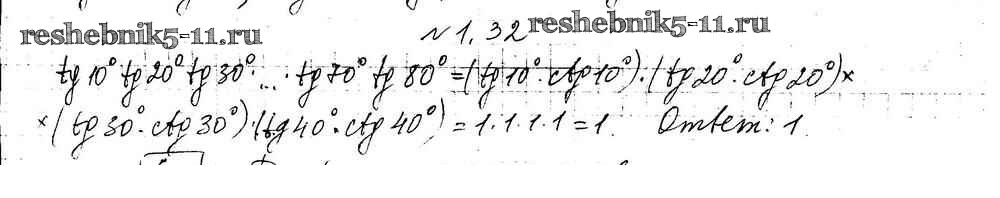 reshebnik5-11.ru
№1.32 reshebnik5-11.ru
tg10° tg20° tg30°· ... · tg70° tg80° = (tg10°·ctg10°)·(tg20°·ctg20°)×
×(tg30°·ctg30°)·(tg40°·ctg40°) = 1·1·1·1 = 1. Ответ: 1.